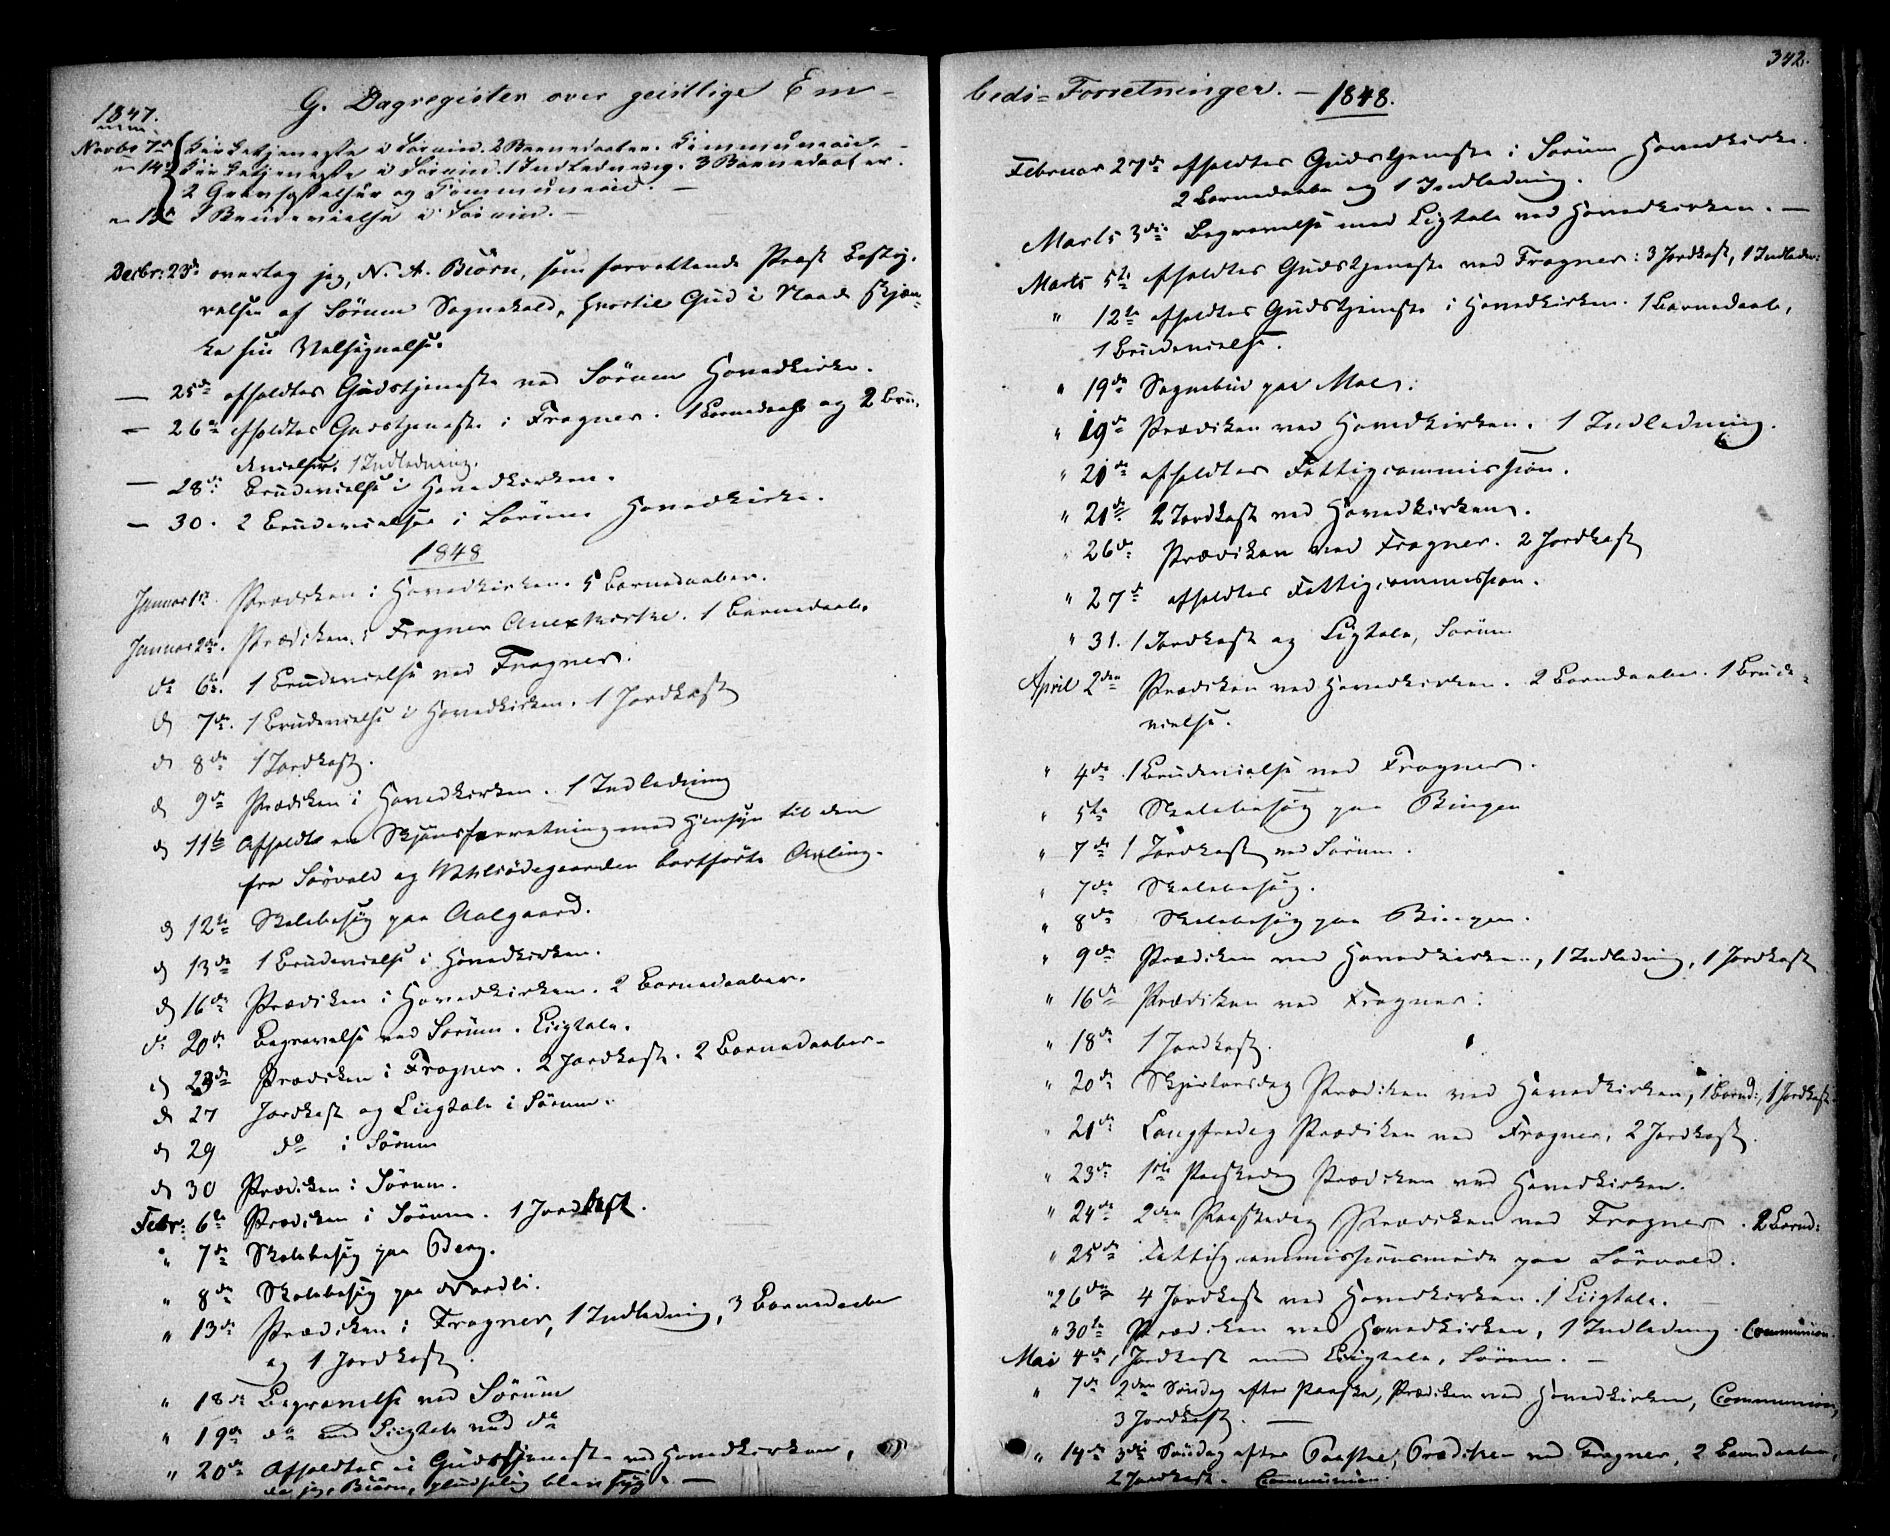 G. Dagregister over geistlige Em-
1847.
Novbr 7de Kirketjeneste i Sørum. 2 Barnedaaber. Communion.
" 14de Kirketjeneste i Sørum. 1 Indledning. 3 Barnedaaber.
2 Communion. —
1 Brudevielse i Sørum. —
Decbr: 23de overtog jeg, N. A. Biørn, som forrettende Præst Besty-
relsen af Sørum Sognekald, hvortil Gud i Naade skjæn-
ke sin Velsignelse.
— 25de afholdtes Gudstjeneste ved Sørum Hovedkirke.
— 26de afholdtes Gudstjeneste i Frogner. 1 Barnedaab og 2 Bru-
devielser. 1 Indledning.
— 28de Brudevielse i Hovedkirken.
— 30. 2 Brudevielser i Sørum Hovedkirke.
1848
Januar 1ste. Prædiken i Hovedkirken. 5 Barnedaaber.
Januar 2den. Prædiken i Frogner Anexkirke. 1 Barnedaab.
do 6te. 1 Brudevielse ved Frogner.
do 7de. 1 Brudevielse i Hovedkirken. 1 Jordkast
do 8de 1 Jordkast.
do 9de Prædiken i Hovedkirken. 1 Indledning
do 11te Afholdt en Skjønsforretning med Hensyn til den
fra Sørvald og bortførte Avling.
do 12te Skolebesøg paa Aalgaard.
do 13de 1 Brudevielse i Hovedkirken.
do 16de Prædiken i Hovedkirken. 2 Barnedaaber.
do 20de Begravelse ved Sørum. Liigtale.
do 23de Prædiken i Frogner. 2 Jordkast. 2 Barnedaaber.
do 27 Jordkast og Liigtale i Sørum.
do 29 do i Sørum
do 30 Prædiken i Sørum.
Febr: 6te Prædiken i Sørum. 1 Jordkast.
" 7de Skolebesøg paa Berg.
" 8de Skolebesøg paa Nordli.
" 13de Prædiken i Frogner, 1 Indledning, 3 Barnedaabe
og 1 Jordkast.
" 18de Begravelse ved Sørum
" 19de do med Liigtale ved do
" 20de Afholdtes ei Gudstjeneste ved Hovedkirken,
da jeg, Biørn, pludselig blev syg. —
342.
beds-Forretninger. — 1848.
Februar 27de afholdtes Gudstjeneste i Sørum Hovedkirke.
2 Barnedaabe og 1 Indledning.
Marts 3die Begravelse med Ligtale ved Hovedkirken. —
Marts 5te afholdtes Gudstjeneste ved Frogner: 3 Jordkast, 1 Indledn:
" 12te afholdtes Gudstjeneste i Hovedkirken. 1 Barnedaab,
1 Brudevielse.
" 19de Sognebud paa Mæl.
" 19de Prædiken ved Hovedkirken. 1 Indledning.
" 21de afholdtes Fattigcommission.
" 21de 2 Jordkast ved Hovedkirken.
" 26de Prædiken ved Frogner. 2 Jordkast
" 27de afholdtes Fattigcommission.
" 31. 1 Jordkast og Ligtale, Sørum
April 2den Prædiken ved Hovedkirken. 2 Barndaabe. 1 Brude-
vielse.
" 4de 1 Brudevielse ved Frogner.
" 5te Skolebesøg paa Bingen
" 7de 1 Jordkast ved Sørum.
" 7de Skolebesøg.
" 8de Skolebesøg paa Bingen.
" 9de Prædiken ved Hovedkirken, 1 Indledning, 1 Jordkast
" 16de Prædiken ved Frogner.
" 18de 1 Jordkast.
" 20de Skjærtorsdag Prædiken ved Hovedkirken, 1 Barnd:, 1 Jordkast
" 21de Langfredag Prædiken ved Frogner, 2 Jordkast.
" 23de 1ste Paaskedag Prædiken ved Hovedkirken.
" 24de 2den Paaskedag Prædiken ved Frogner. 2 Barnd:
" 25de Fattigcommissionsmøde paa Sørvald.
" 26de 4 Jordkast ved Hovedkirken. 1 Liigtale. —
" 30te Prædiken ved Hovedkirken, 1 Indledning. Communion.
Mai 4de 1 Jordkast med Liigtale, Sørum. —
" 7de 2den Søndag efter Paaske, Prædiken ved Hovedkirken, Communion,
3 Jordkast. —
" 14de 3die Søndag efter Paaske, Prædiken ved Frogner, 2 Barndaaber,
2 Jordkast. Communion.